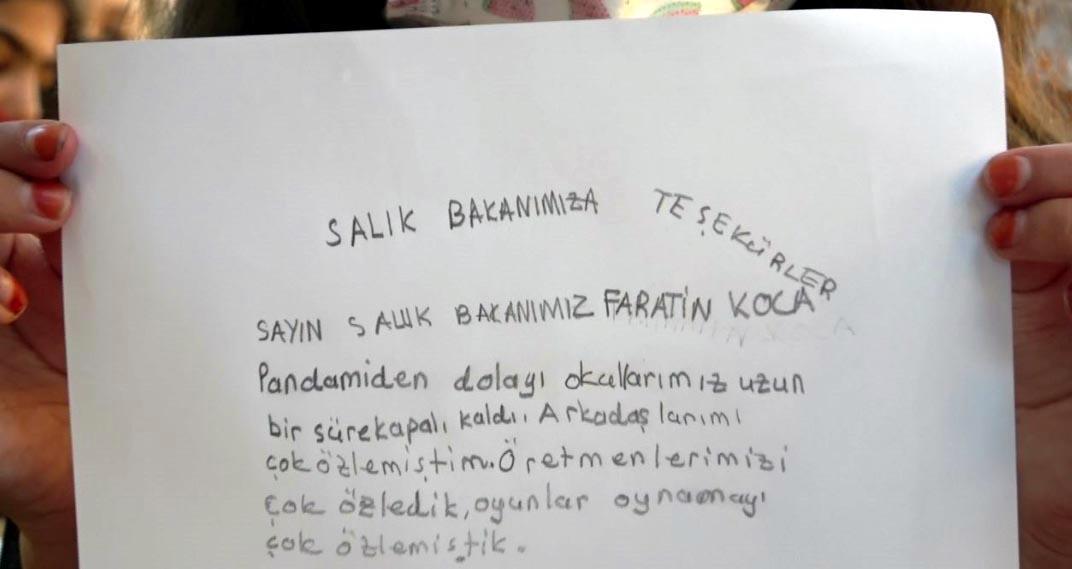 SALIK BAKANIMIZA TEŞEKÜRLER
SAYIN SALIK BAKANIMIZ FARATİN KOCA
Pandamiden dolayı okullarımız uzun
bir sürekapalı kaldı. Arkadaşlarımı
çok özlemiştim. Öretmenlerimizi
çok özledik, oyunlar oynamayı
çok özlemiştik.